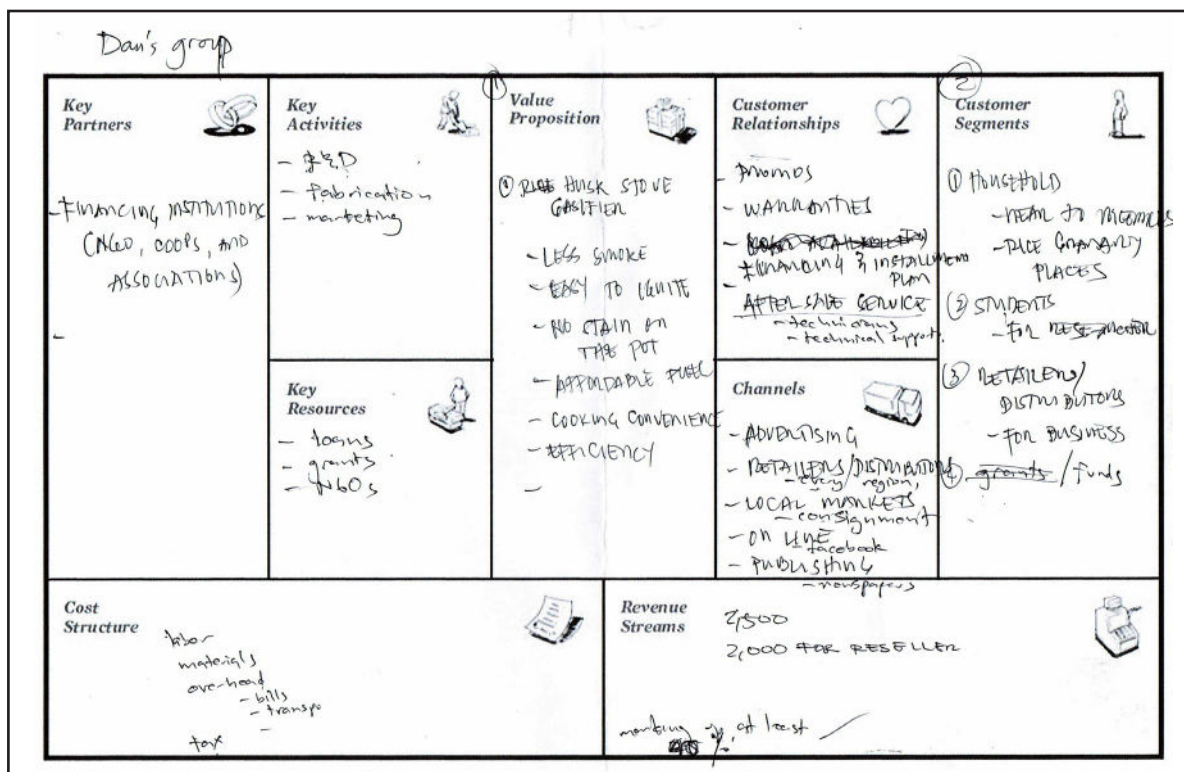 Dan's group
Key
Partners
- FINANCING INSTITUTIONS
(NGO, COOPS, AND
ASSOCIATIONS)
-
Key
Activities
- R&D
- fabrication
- marketing
Key
Resources
- loans
- grants
- NGOs
①
Value
Proposition
① RICE HUSK STOVE
GASIFIER
- LESS SMOKE
- EASY TO IGNITE
- NO STAIN ON
THE POT
- AFFORDABLE FUEL
- COOKING CONVENIENCE
- EFFICIENCY
-
Customer
Relationships
- PROMOS
- WARRANTIES
-
FINANCING & INSTALLMENT
PLAN
-
AFTER SALE SERVICE
- technicians
- technical support
Channels
- ADVERTISING
- RETAILERS/DISTRIBUTORS
- every region
- LOCAL MARKETS
- consignment
- ON LINE
- facebook
- PUBLISHING
- newspapers
②
Customer
Segments
① HOUSEHOLD
- NEAR TO
- RICE GRANARY
PLACES
② STUDENTS
- FOR
③ RETAILERS/
DISTRIBUTORS
- FOR BUSINESS
④ grants / funds
Cost
Structure
labor
materials
overhead
- bills
- transpo
-
tax
Revenue
Streams
2,500
2,000 FOR RESELLER
% at least